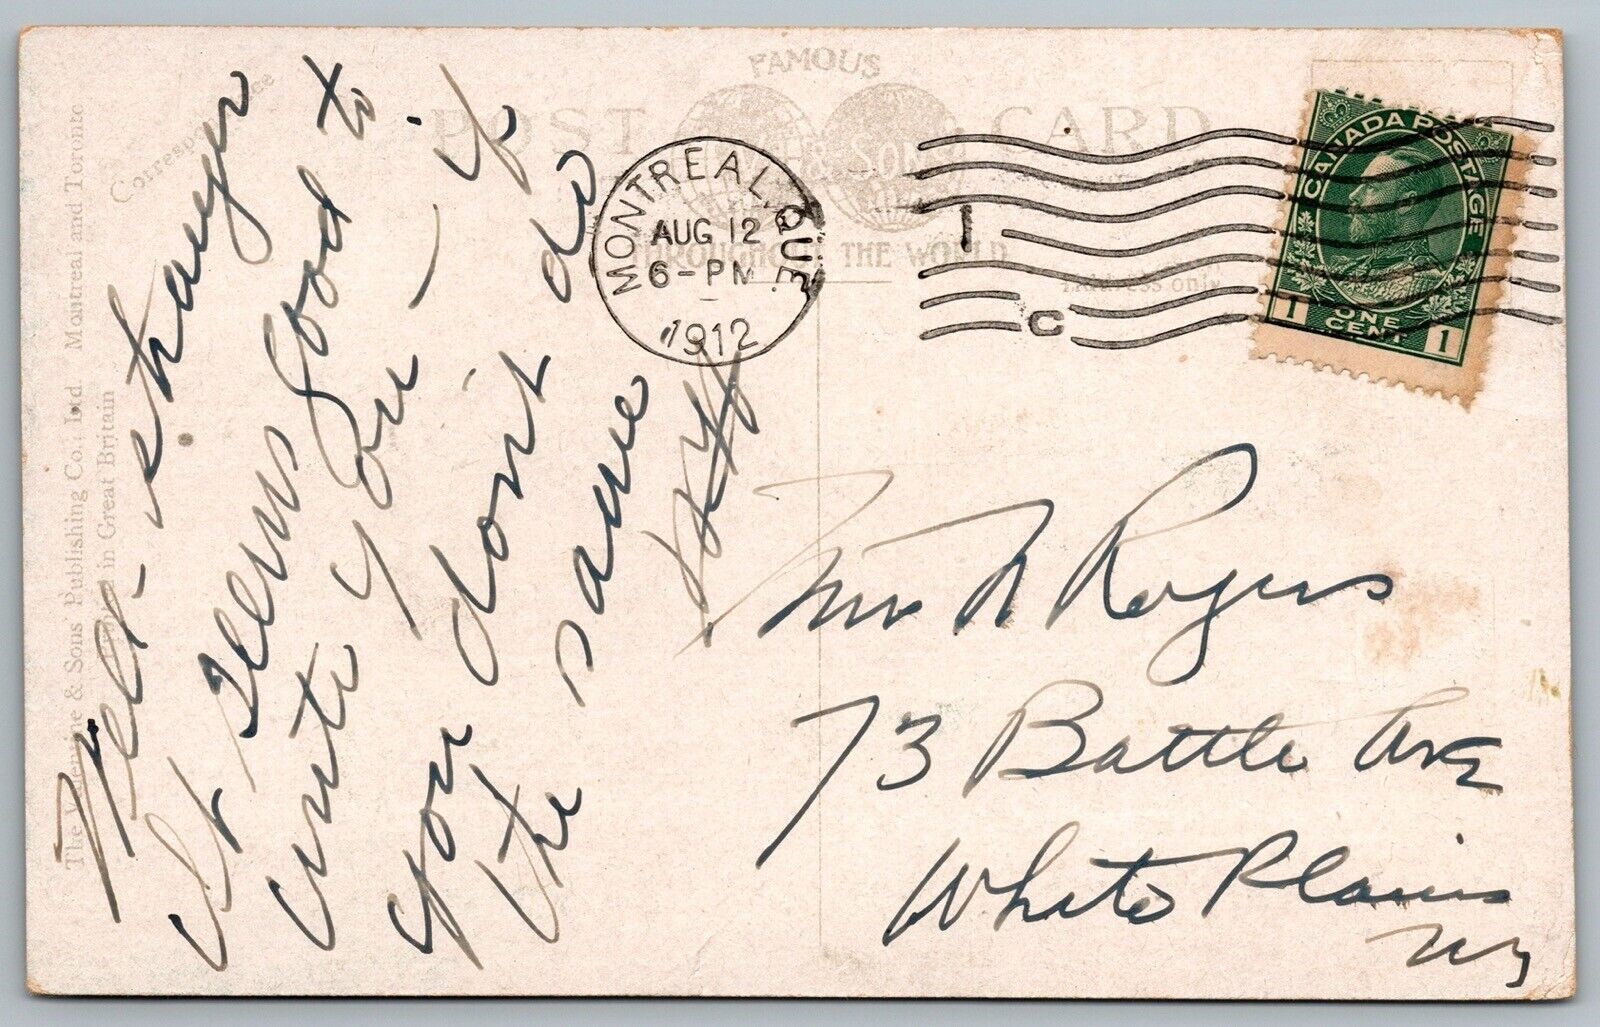 POST CARD
FAMOUS
& SONS
THROUGHOUT THE WORLD
Correspondence
Address only
The Valentine & Sons' Publishing Co., Ltd Montreal and Toronto
Printed in Great Britain
MONTREAL, QUE.
AUG 12
6-PM
1912
1
C
CANADA POSTAGE
1 ONE CENT 1
Well - stranger
It seems good to
write you - if
you don't do
the same
Mrs N Rogers
73 Battle Ave
White Plains
NY